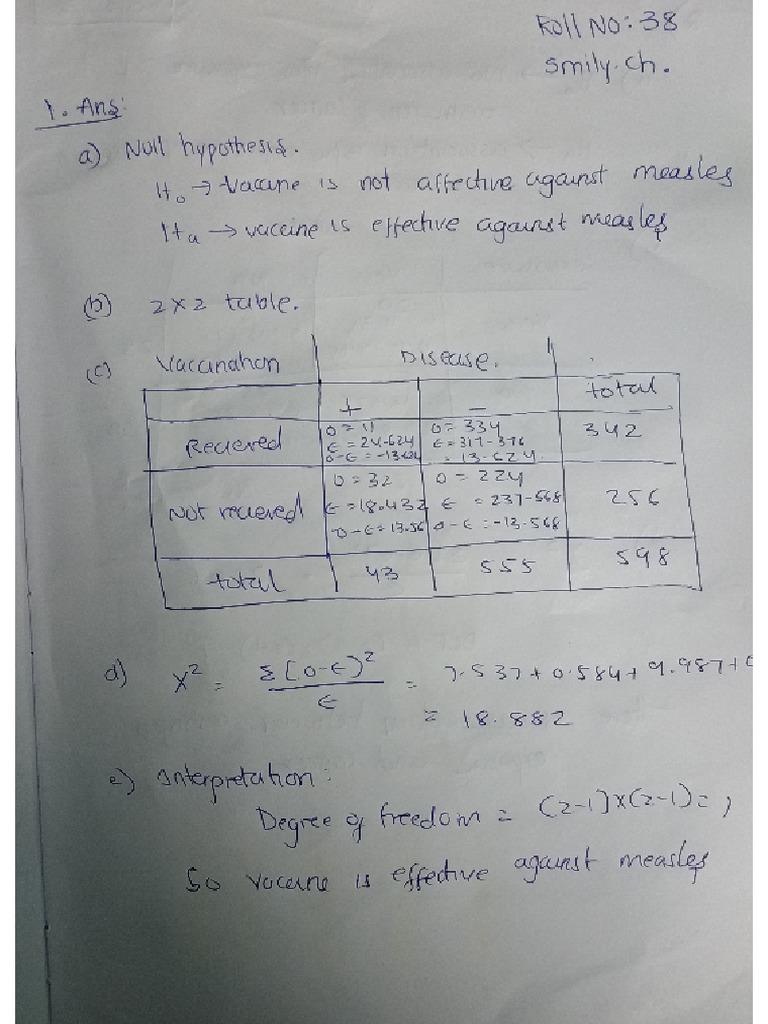 Roll No: 38
Smily. Ch.
1. Ans:
a) Null hypothesis.
Ho → Vaccine is not affective against measles
Ha → vaccine is effective against measles
(b) 2x2 table.
(c) Vaccination Disease.
+ - total
Recieved O = 11 O = 334 342
E = 24.624 E = 317-376
O-E = -13.624 = 13.624
Not recieved O = 32 O = 224 256
E = 18.432 E = 237-568
O-E = 13.56 O-E = -13.568
total 43 555 598
d) X² = Σ(O-E)² / E = 7.537 + 0.584 + 9.987 +
= 18.882
e) Interpretation:
Degree of freedom = (2-1)x(2-1) =
So vaccine is effective against measles